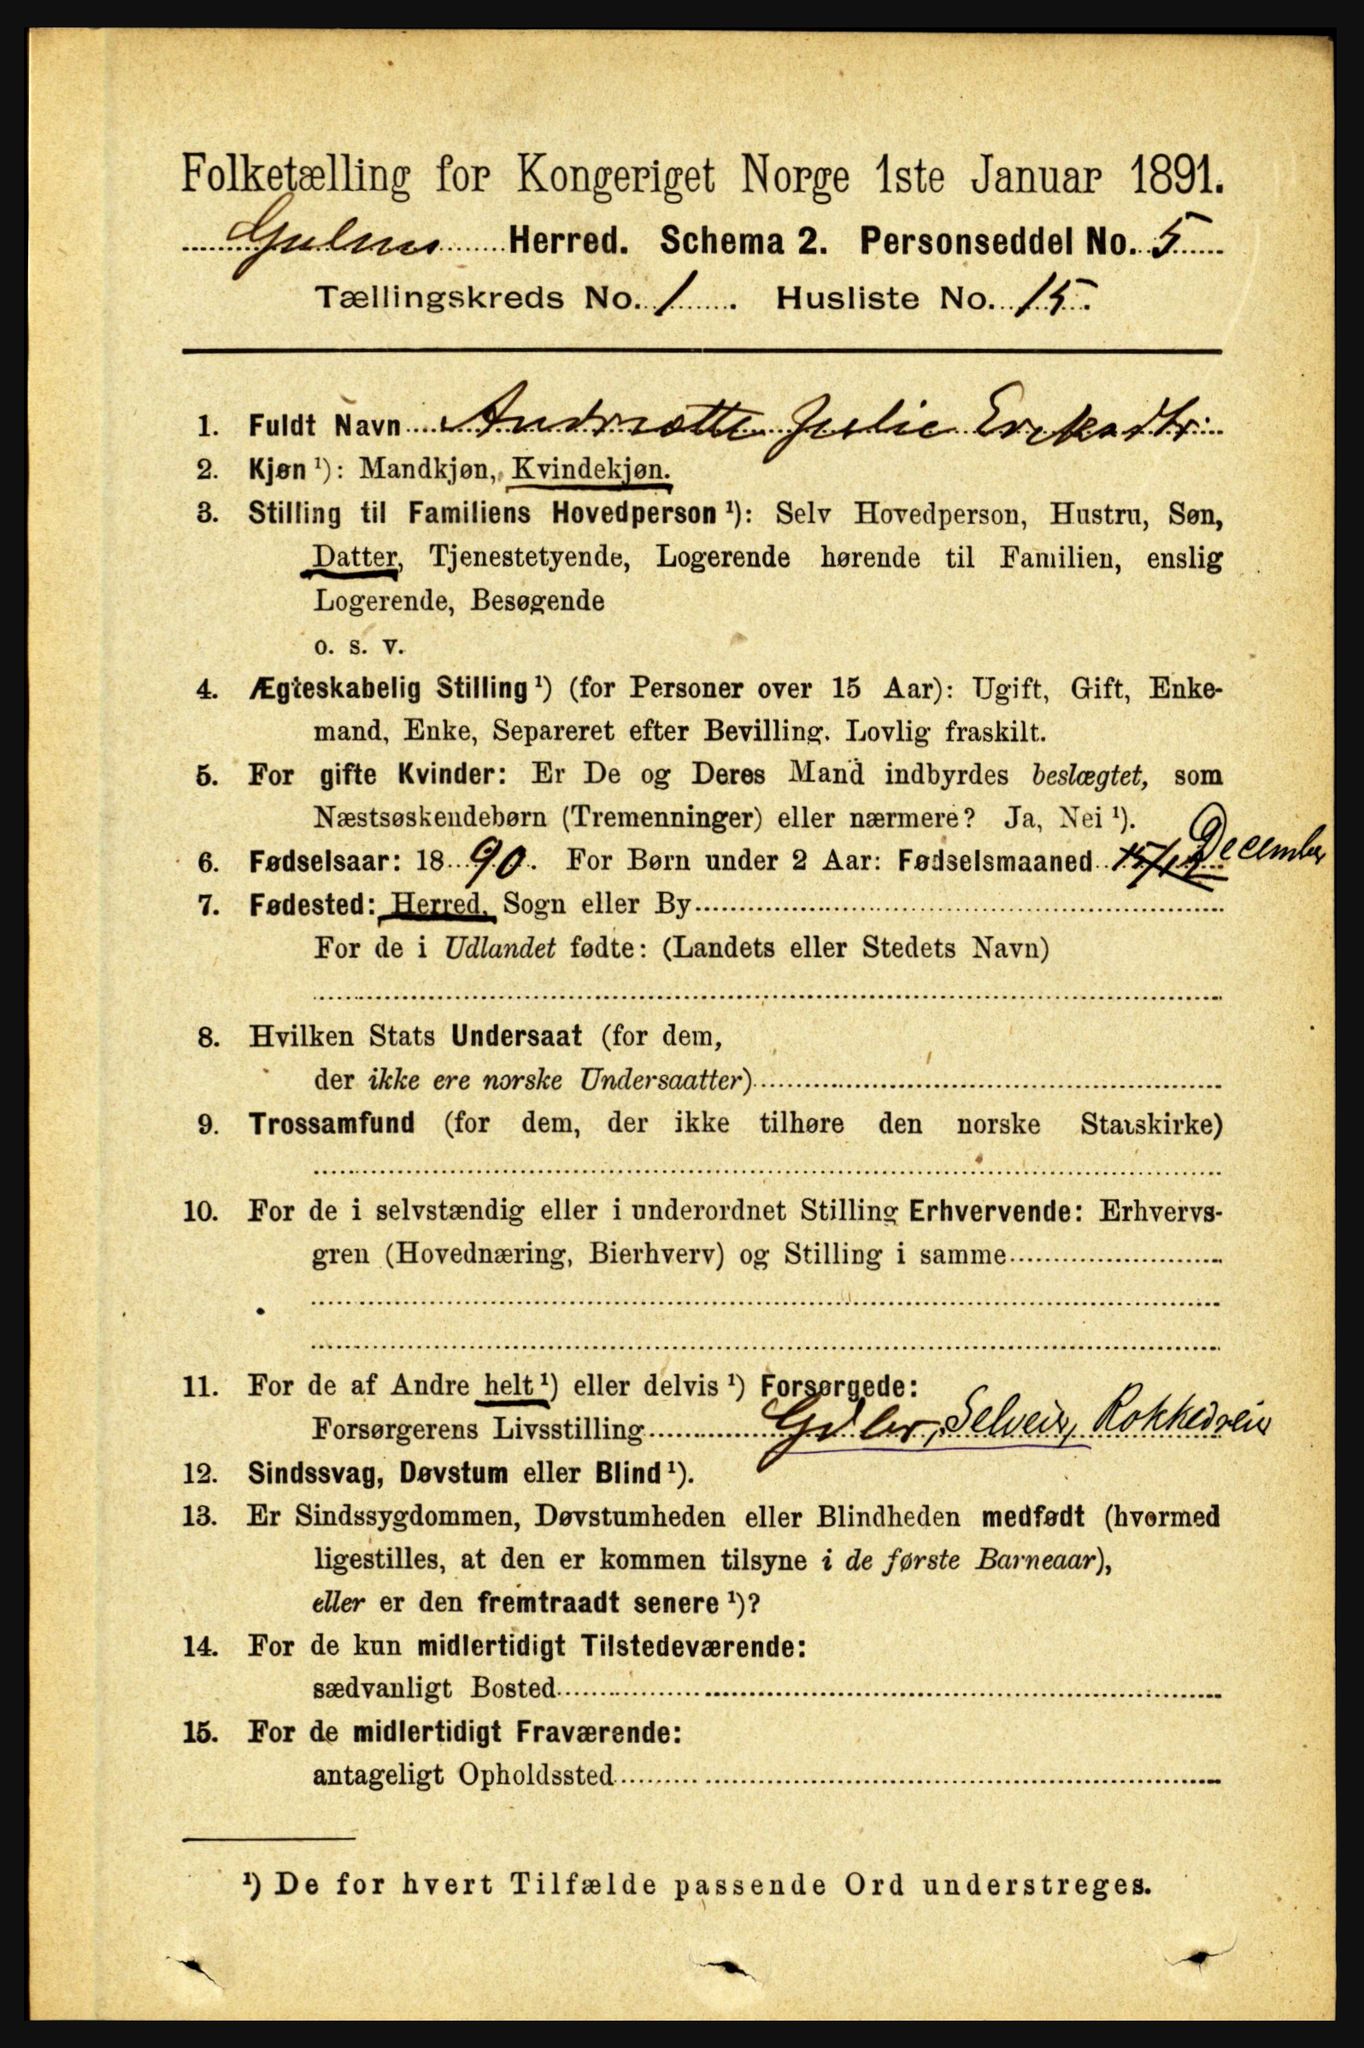 Folketælling for Kongeriget Norge 1ste Januar 1891.
Gulens Herred. Schema 2. Personseddel No. 5
Tællingskreds No. 1. Husliste No. 15.
1. Fuldt Navn Andriette Julie Eriksdtr.
2. Kjøn ¹): Mandkjøn, Kvindekjøn.
3. Stilling til Familiens Hovedperson ¹): Selv Hovedperson, Hustru, Søn,
Datter, Tjenestetyende, Logerende hørende til Familien, enslig
Logerende, Besøgende
o. s. v.
4. Ægteskabelig Stilling ¹) (for Personer over 15 Aar): Ugift, Gift, Enke-
mand, Enke, Separeret efter Bevilling. Lovlig fraskilt.
5. For gifte Kvinder: Er De og Deres Mand indbyrdes beslægtet, som
Næstsøskendebørn (Tremenninger) eller nærmere? Ja, Nei ¹).
6. Fødselsaar: 1890. For Børn under 2 Aar: Fødselsmaaned 15/12 December
7. Fødested: Herred, Sogn eller By
For de i Udlandet fødte: (Landets eller Stedets Navn)
8. Hvilken Stats Undersaat (for dem,
der ikke ere norske Undersaatter)
9. Trossamfund (for dem, der ikke tilhøre den norske Statskirke)
10. For de i selvstændig eller i underordnet Stilling Erhvervende: Erhvervs-
gren (Hovednæring, Bierhverv) og Stilling i samme
11. For de af Andre helt ¹) eller delvis ¹) Forsørgede:
Forsørgerens Livsstilling Gdbr, Selveir, Rokkedreier
12. Sindssvag, Døvstum eller Blind ¹).
13. Er Sindssygdommen, Døvstumheden eller Blindheden medfødt (hvormed
ligestilles, at den er kommen tilsyne i de første Barneaar),
eller er den fremtraadt senere ¹)?
14. For de kun midlertidigt Tilstedeværende:
sædvanligt Bosted
15. For de midlertidigt Fraværende:
antageligt Opholdssted
¹) De for hvert Tilfælde passende Ord understreges.